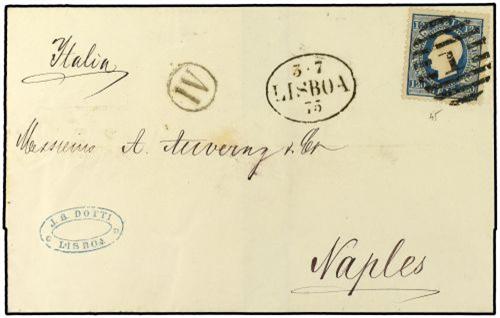 Italia
IV
3·7
LISBOA
75
1
45
Messieurs A. Auverny & Co
J. B. DOTTI
LISBOA
Naples